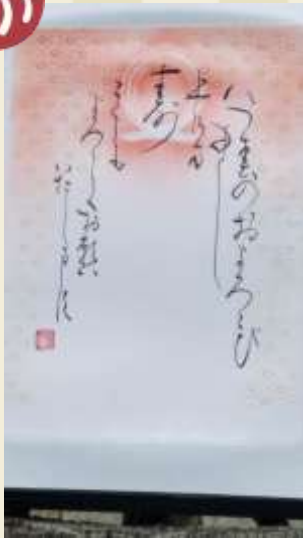 はつ春のおよろこび
申し
上げます
ことしも
よろしくお願い
いたします